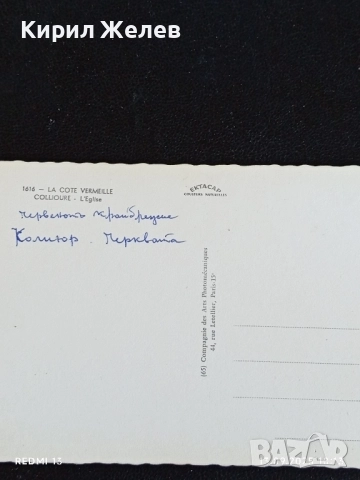 Кирил Желев
1616 — LA COTE VERMEILLE
COLLIOURE - L'Eglise
EKTACAP
червеното крайбрежие
Колиюр. Черквата
(65) Compagnie des Arts Photomécaniques
44, rue Letellier, Paris-15e
REDMI 13
BAZAR